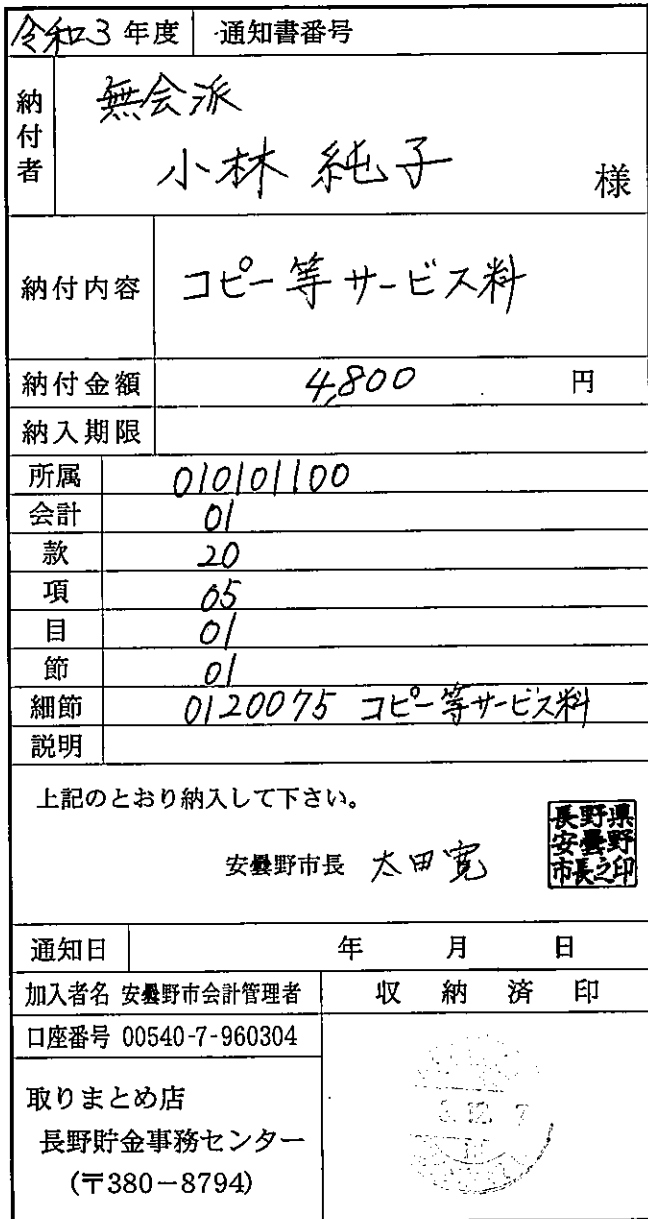 令和3年度 通知書番号
納付者 無会派
小林 純子 様
納付内容 コピー等サービス料
納付金額 4,800 円
納入期限
所属 010101100
会計 01
款 20
項 05
目 01
節 01
細節 0120075 コピー等サービス料
説明
上記のとおり納入して下さい。
安曇野市長 太田寛
長野県
安曇野
市長之印
通知日 年 月 日
加入者名 安曇野市会計管理者 収納済印
口座番号 00540-7-960304
取りまとめ店
長野貯金事務センター
(〒380-8794)
3.12.7